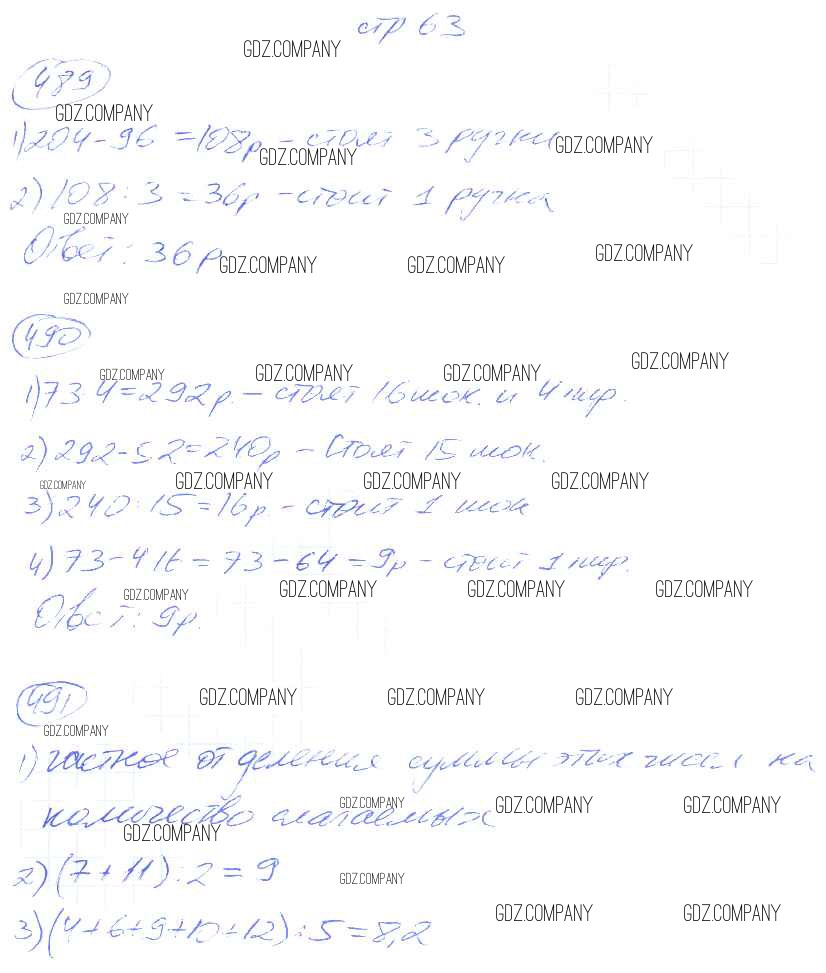 стр 63
GDZ.COMPANY
489
GDZ.COMPANY
1) 204 - 96 = 108р - стоят 3 ручки GDZ.COMPANY
GDZ.COMPANY
2) 108 : 3 = 36р - стоит 1 ручка
GDZ.COMPANY
Ответ: 36р GDZ.COMPANY GDZ.COMPANY GDZ.COMPANY
GDZ.COMPANY
490
GDZ.COMPANY GDZ.COMPANY GDZ.COMPANY GDZ.COMPANY
1) 73·4 = 292р. - стоят 16 шок. и 4 пир.
2) 292 - 52 = 240р - Стоят 15 шок.
GDZ.COMPANY GDZ.COMPANY GDZ.COMPANY GDZ.COMPANY
3) 240 : 15 = 16р - стоит 1 шок
4) 73 - 4·16 = 73 - 64 = 9р - стоит 1 пир.
GDZ.COMPANY GDZ.COMPANY GDZ.COMPANY GDZ.COMPANY
Ответ: 9р.
491
GDZ.COMPANY GDZ.COMPANY GDZ.COMPANY
GDZ.COMPANY
1) частное от деления суммы этих чисел на
количество слагаемых
GDZ.COMPANY GDZ.COMPANY GDZ.COMPANY
GDZ.COMPANY
2) (7 + 11) : 2 = 9
GDZ.COMPANY
3) (4 + 6 + 9 + 10 + 12) : 5 = 8,2
GDZ.COMPANY GDZ.COMPANY